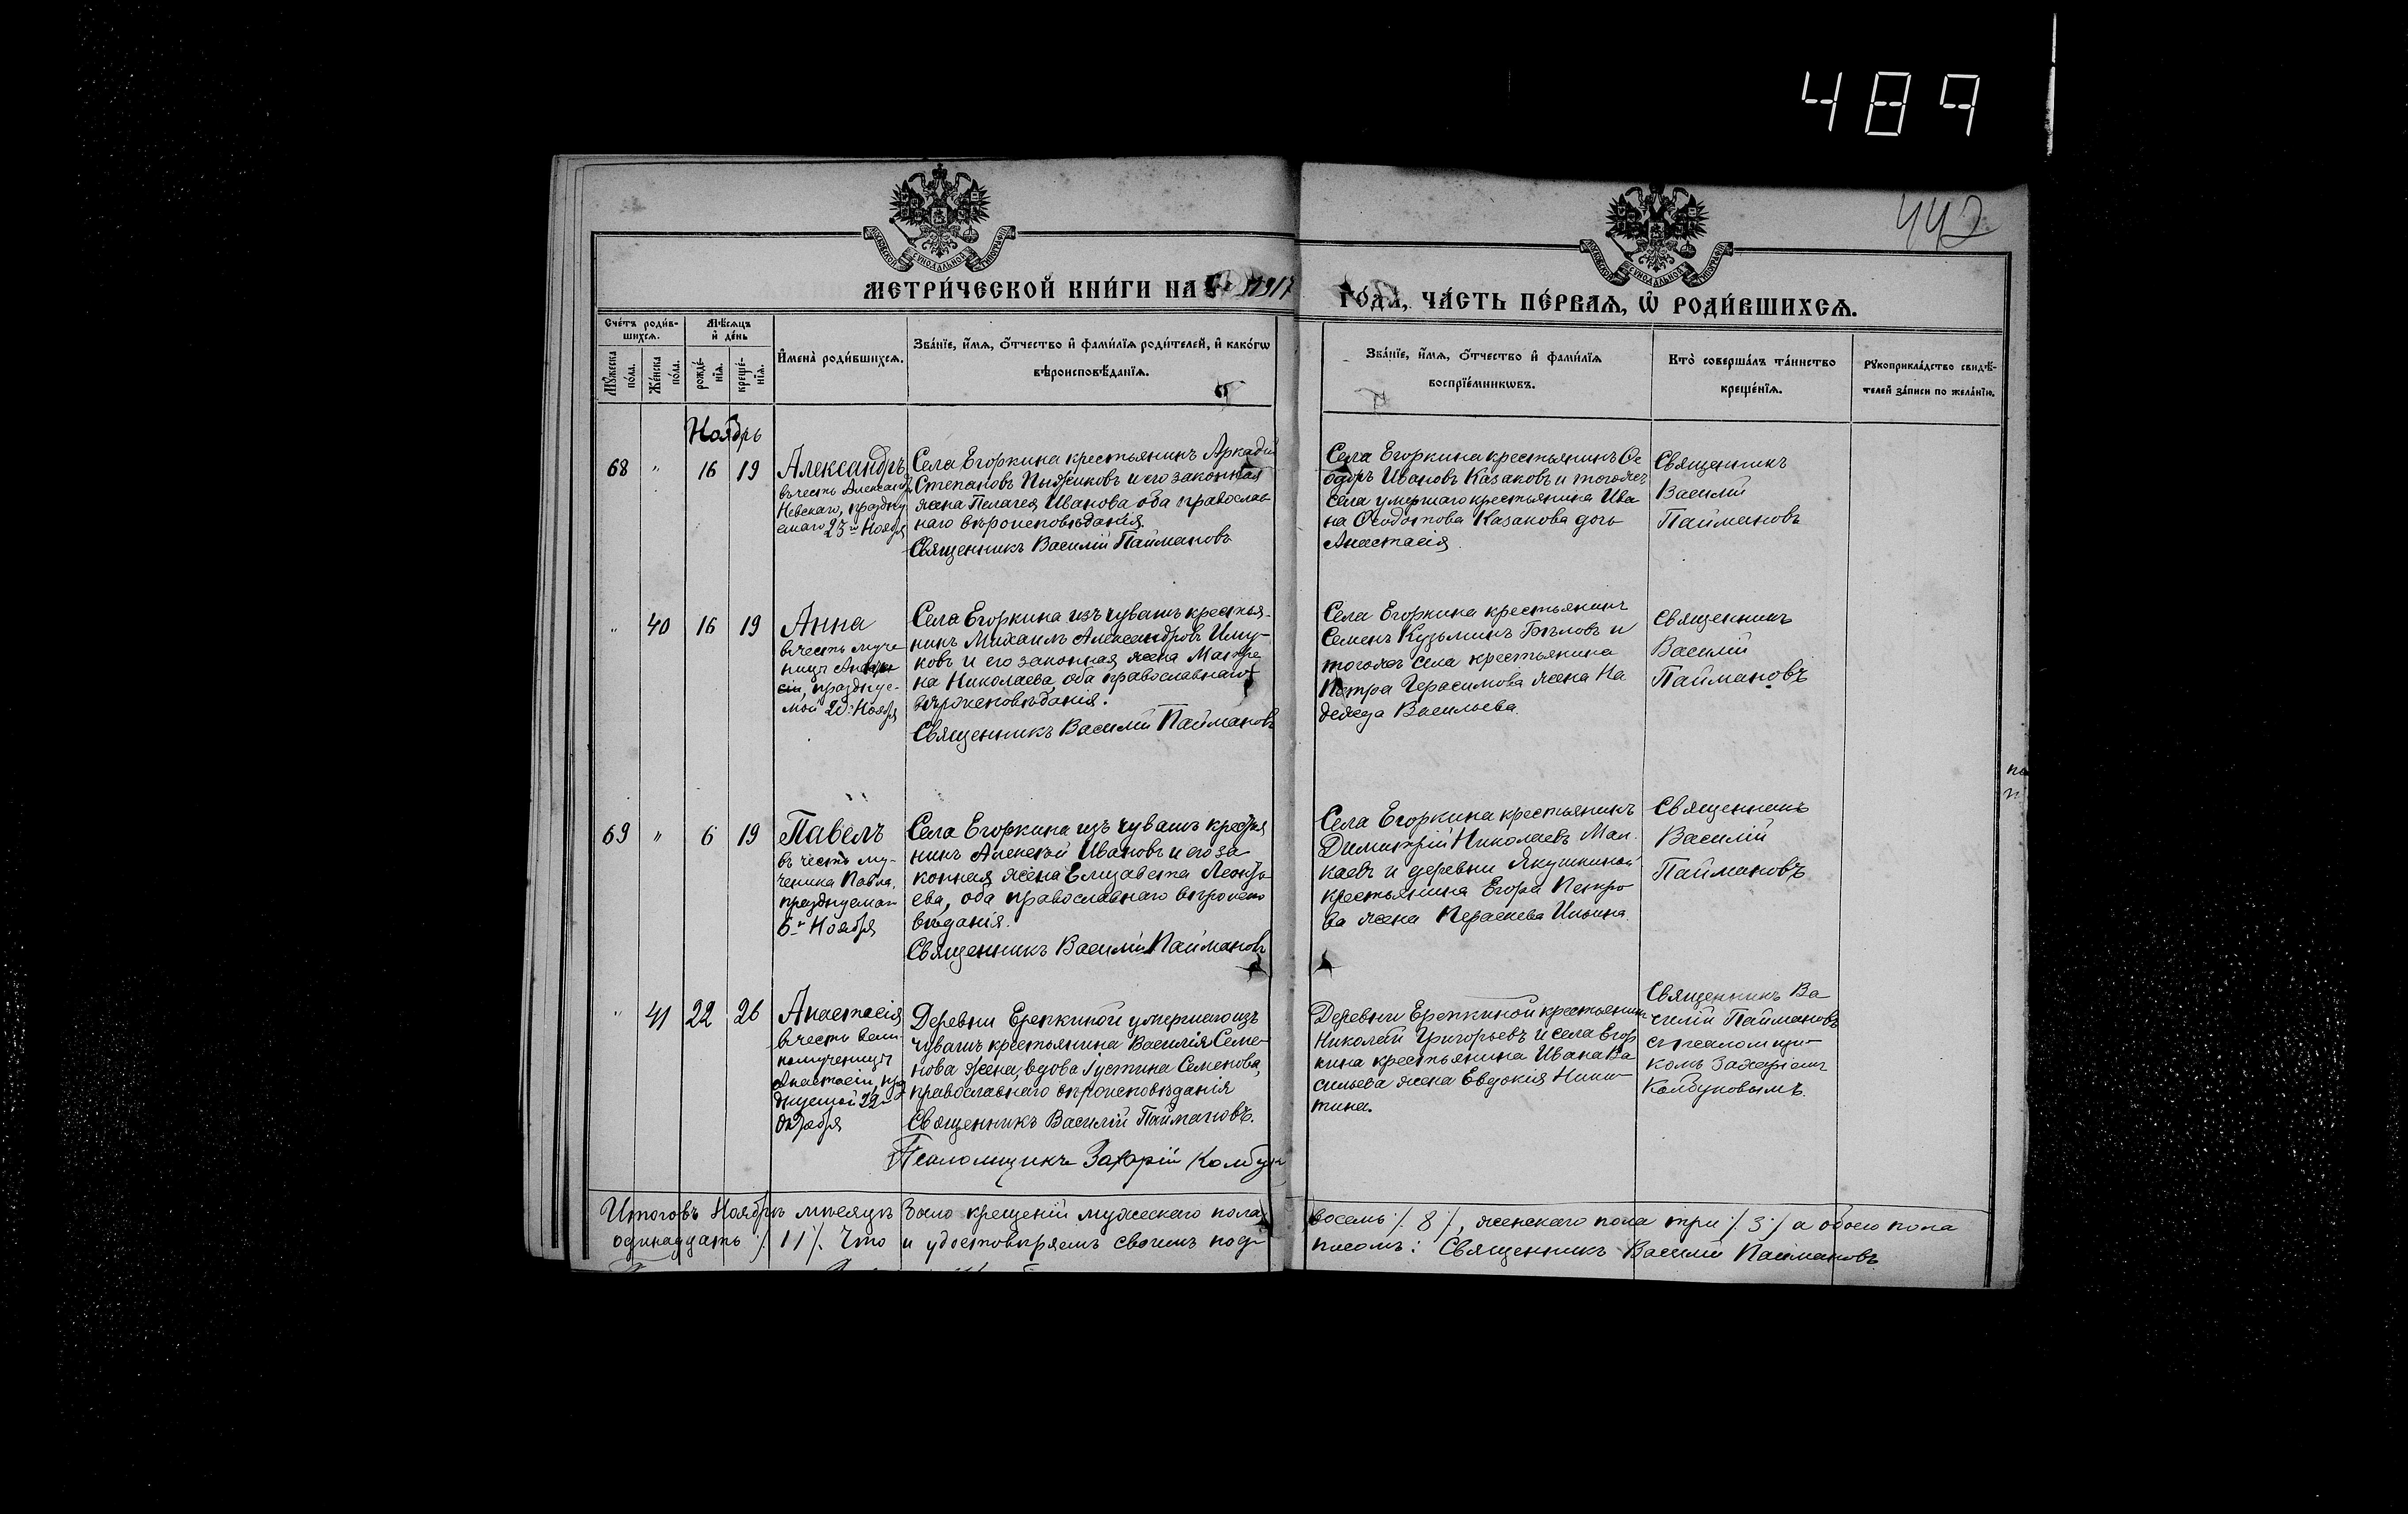 489
442
МОСКОВСКОЙ СѴНОДАЛЬНОЙ ТИПОГРАФІИ
МОСКОВСКОЙ СѴНОДАЛЬНОЙ ТИПОГРАФІИ
МЕТРИ́ЧЕСКОЙ КНИ́ГИ НА 1917
ГО́ДА, ЧА́СТЬ ПЕ́РВАѦ, Ѡ҆ РОДИ́ВШИХСѦ.
Сче́тъ роди́в-
шихсѧ.
Мѣ́сѧцъ
и҆ де́нь
Мꙋ́жеска
по́ла.
Же́нска
по́ла.
рожде́-
нїѧ.
креще́-
нїѧ.
И҆мена̀ роди́вшихсѧ.
Зва́нїе, и҆́мѧ, ѻ҆́тчество и҆ фами́лїѧ роди́телей, и҆ како́гѡ
вѣроисповѣ́данїѧ.
Зва́нїе, и҆́мѧ, ѻ҆́тчество и҆ фами́лїѧ
воспрїе́мникѡвъ.
Кто̀ соверша́лъ та́инство
креще́нїѧ.
Рꙋкоприкла́дство свидѣ́-
телей за́писи по жела́нїю.
Ноябрь
68 " 16 19
Александръ
въ честь Александр
Невскаго, праздну
емаго 23го Ноября
Села Егоркина крестьянинъ Аркадій
Степановъ Пыжиковъ и его законная
жена Пелагея Иванова оба православ
наго вѣроисповѣданія.
Священникъ Василій Паймановъ
Села Егоркина крестьянинъ Ѳе
одоръ Ивановъ Казаковъ и тогожъ
села умершаго крестьянина Ива
на Ѳеодотова Казакова дочь
Анастасія.
Священникъ
Василій
Паймановъ
" 40 16 19
Анна
въ честь муче
ницы
празднуе-
мой 20 Ноября
Села Егоркина изъ чувашъ крестья-
нинъ Михаилъ Александровъ
ковъ и его законная жена Матре
на Николаева, оба православнаго
вѣроисповѣданія.
Священникъ Василій Паймановъ
Села Егоркина крестьянинъ
Семенъ Кузьминъ Бѣловъ и
тогожъ села крестьянина
Петра Герасимова жена На
дежда Васильева.
Священникъ
Василій
Паймановъ
69 " 6 19
Павелъ
въ честь му-
ченика Павла,
празднуемаго
6го Ноября
Села Егоркина изъ чувашъ крестья
нинъ Алексѣй Ивановъ и его за
конная жена Елизавета Леонть
ева, оба православнаго вѣроиспо
вѣданія.
Священникъ Василій Паймановъ
Села Егоркина крестьянинъ
Димитрій Николаевъ Мал
каевъ и деревни Якушкиной
крестьянина Егора Петро
ва жена Параскева Ильина.
Священникъ
Василій
Паймановъ
" 41 22 26
Анастасія
въ честь вели
комученицы
Анастасіи, пра
днуемой 22го
Села Деревни Ерепкиной умершаго изъ
чувашъ крестьянина Василія Семе-
нова жена, вдова Іустина Семенова,
православнаго вѣроисповѣданія
Священникъ Василій Паймановъ.
Псаломщикъ Захарій Колбук
Деревни Ерепкиной крестьянинъ
Николай Григорьевъ и села Егор
кина крестьянина Ивана Ва
сильева жена Евдокія Ники-
тина.
Священникъ Ва
силій Паймановъ
съ псаломщи-
комъ Захаріемъ
Колбуковымъ.
Итого въ Ноябрѣ мѣсяцѣ было крещеній мужескаго пола восемь /. 8 /., женскаго пола три /. 3 /. а обоего пола
одинадцать /. 11 /. Что и удостовѣряемъ своимъ под- писомъ: Священникъ Василій Паймановъ